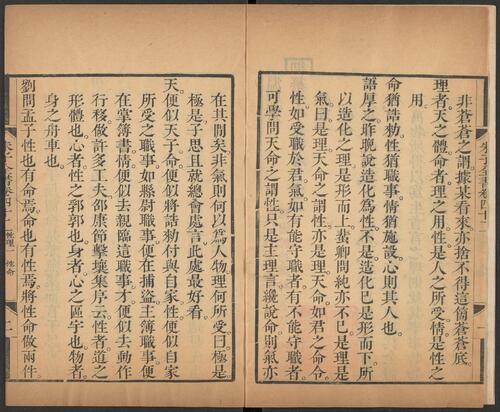 朱子全書卷四十二
非蒼蒼之謂。據某看來。亦捨不得這箇蒼蒼底。
理者。天之體。命者。理之用。性是人之所受。情是性之
用。
命猶誥勑。性猶職事。情猶施設。心則其人也。
語厚之昨晚說造化為性不是。造化已是形而下。所
以造化之理是形而上。蜚卿問純亦不已。是理是
氣。曰。是理。天命之謂性。亦是理。天命如君之命令。
性如受職於君。氣如有能守職者。有不能守職者。
可學問天命之謂性。只是主理言。纔說命。則氣亦
在其間矣。非氣則何以為人物。理何所受。曰。極是
極是。子思且就總會處言。此處最好看。
天便似天子。命便似將誥勑付與自家。性便似自家
所受之職事。如縣尉職事便在捕盜。主簿職事便
在掌簿書。情便似去親臨這職事。才便似去動作
行移做許多工夫。邵康節擊壤集序云。性者道之
形體也。心者性之郛郭也。身者心之區宇也。物者
身之舟車也。
劉問孟子性也有命焉。命也有性焉。將性命做兩件。
朱子全書卷四十二 性命 二